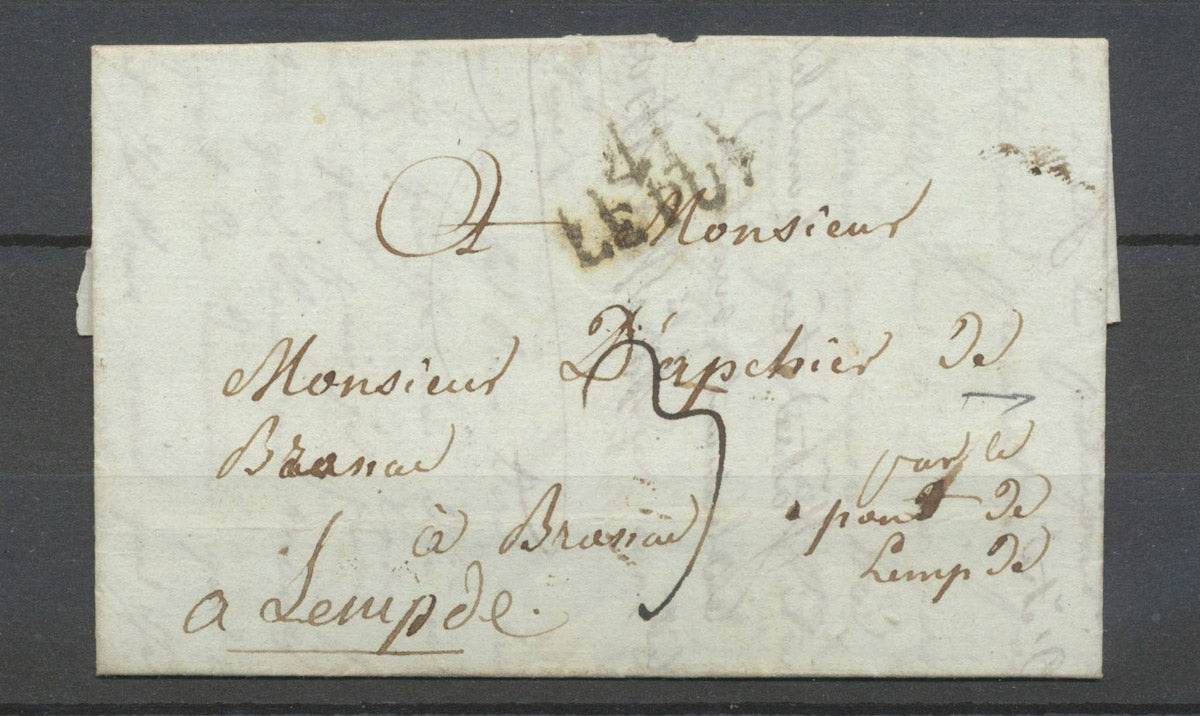 41
LE PUY
A Monsieur
Monsieur D'apchier de
Branac
par le
pont de
Lempde
à Branac
a Lempde.
3